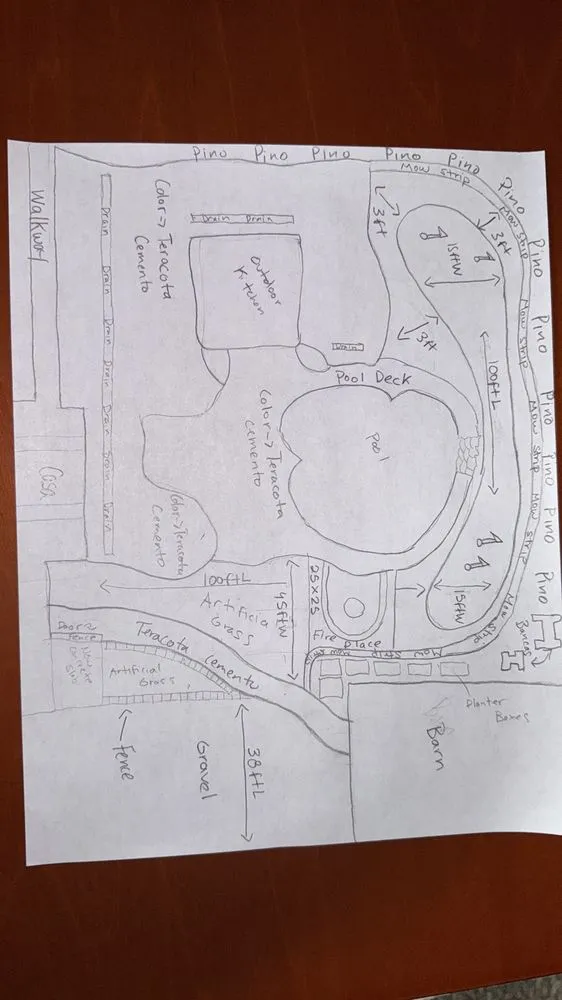 Pino Pino Pino Pino Pino Pino Pino Pino Pino Pino Pino Pino
Mow strip
Mow strip
Mow strip
Mow strip
Mow strip
Mow strip
Walkway
Drain
Drain
Drain
Drain
Drain
Drain
Drain
Color → Teracota
Cemento
Drain Drain
Outdoor
Kitchen
3ft
15ftW
3ft
3ft
Drain
Pool Deck
100ftL
Color → Teracota
cemento
Pool
Casa
Color → Teracota
Cemento
100ftL
Artificial
Grass
45ftW
25x25
Fire place
15ftW
Mow strip
Bancas
Door
Fence
Teracota Cemento
Artificial
Grass
Planter
Boxes
Barn
Fence
Gravel
38ftL